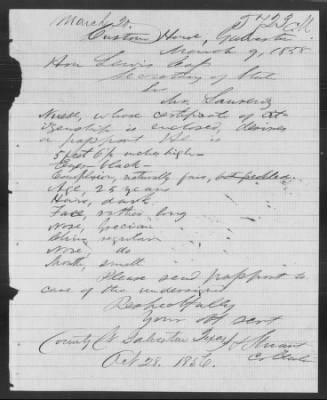 March 20.
Custom House, Galveston
March 9, 1858
Hon Lewis Cass
Secretary of State
Sir
Mr. Laurenz
whose certificate of cit-
izenship is enclosed, desires
a passport He is
5 feet 6½ inches high—
Eyes - black—
Complexion, naturally fair,
Age, 25 years
Hair, dark
Face, rather long
Nose, Grecian
regular
Nose, do
Mouth, small
Please send passport to
care of the undersigned
Respectfully
Your obt servt
County Ct Galveston Texas Stuart
Oct 28. 1856.